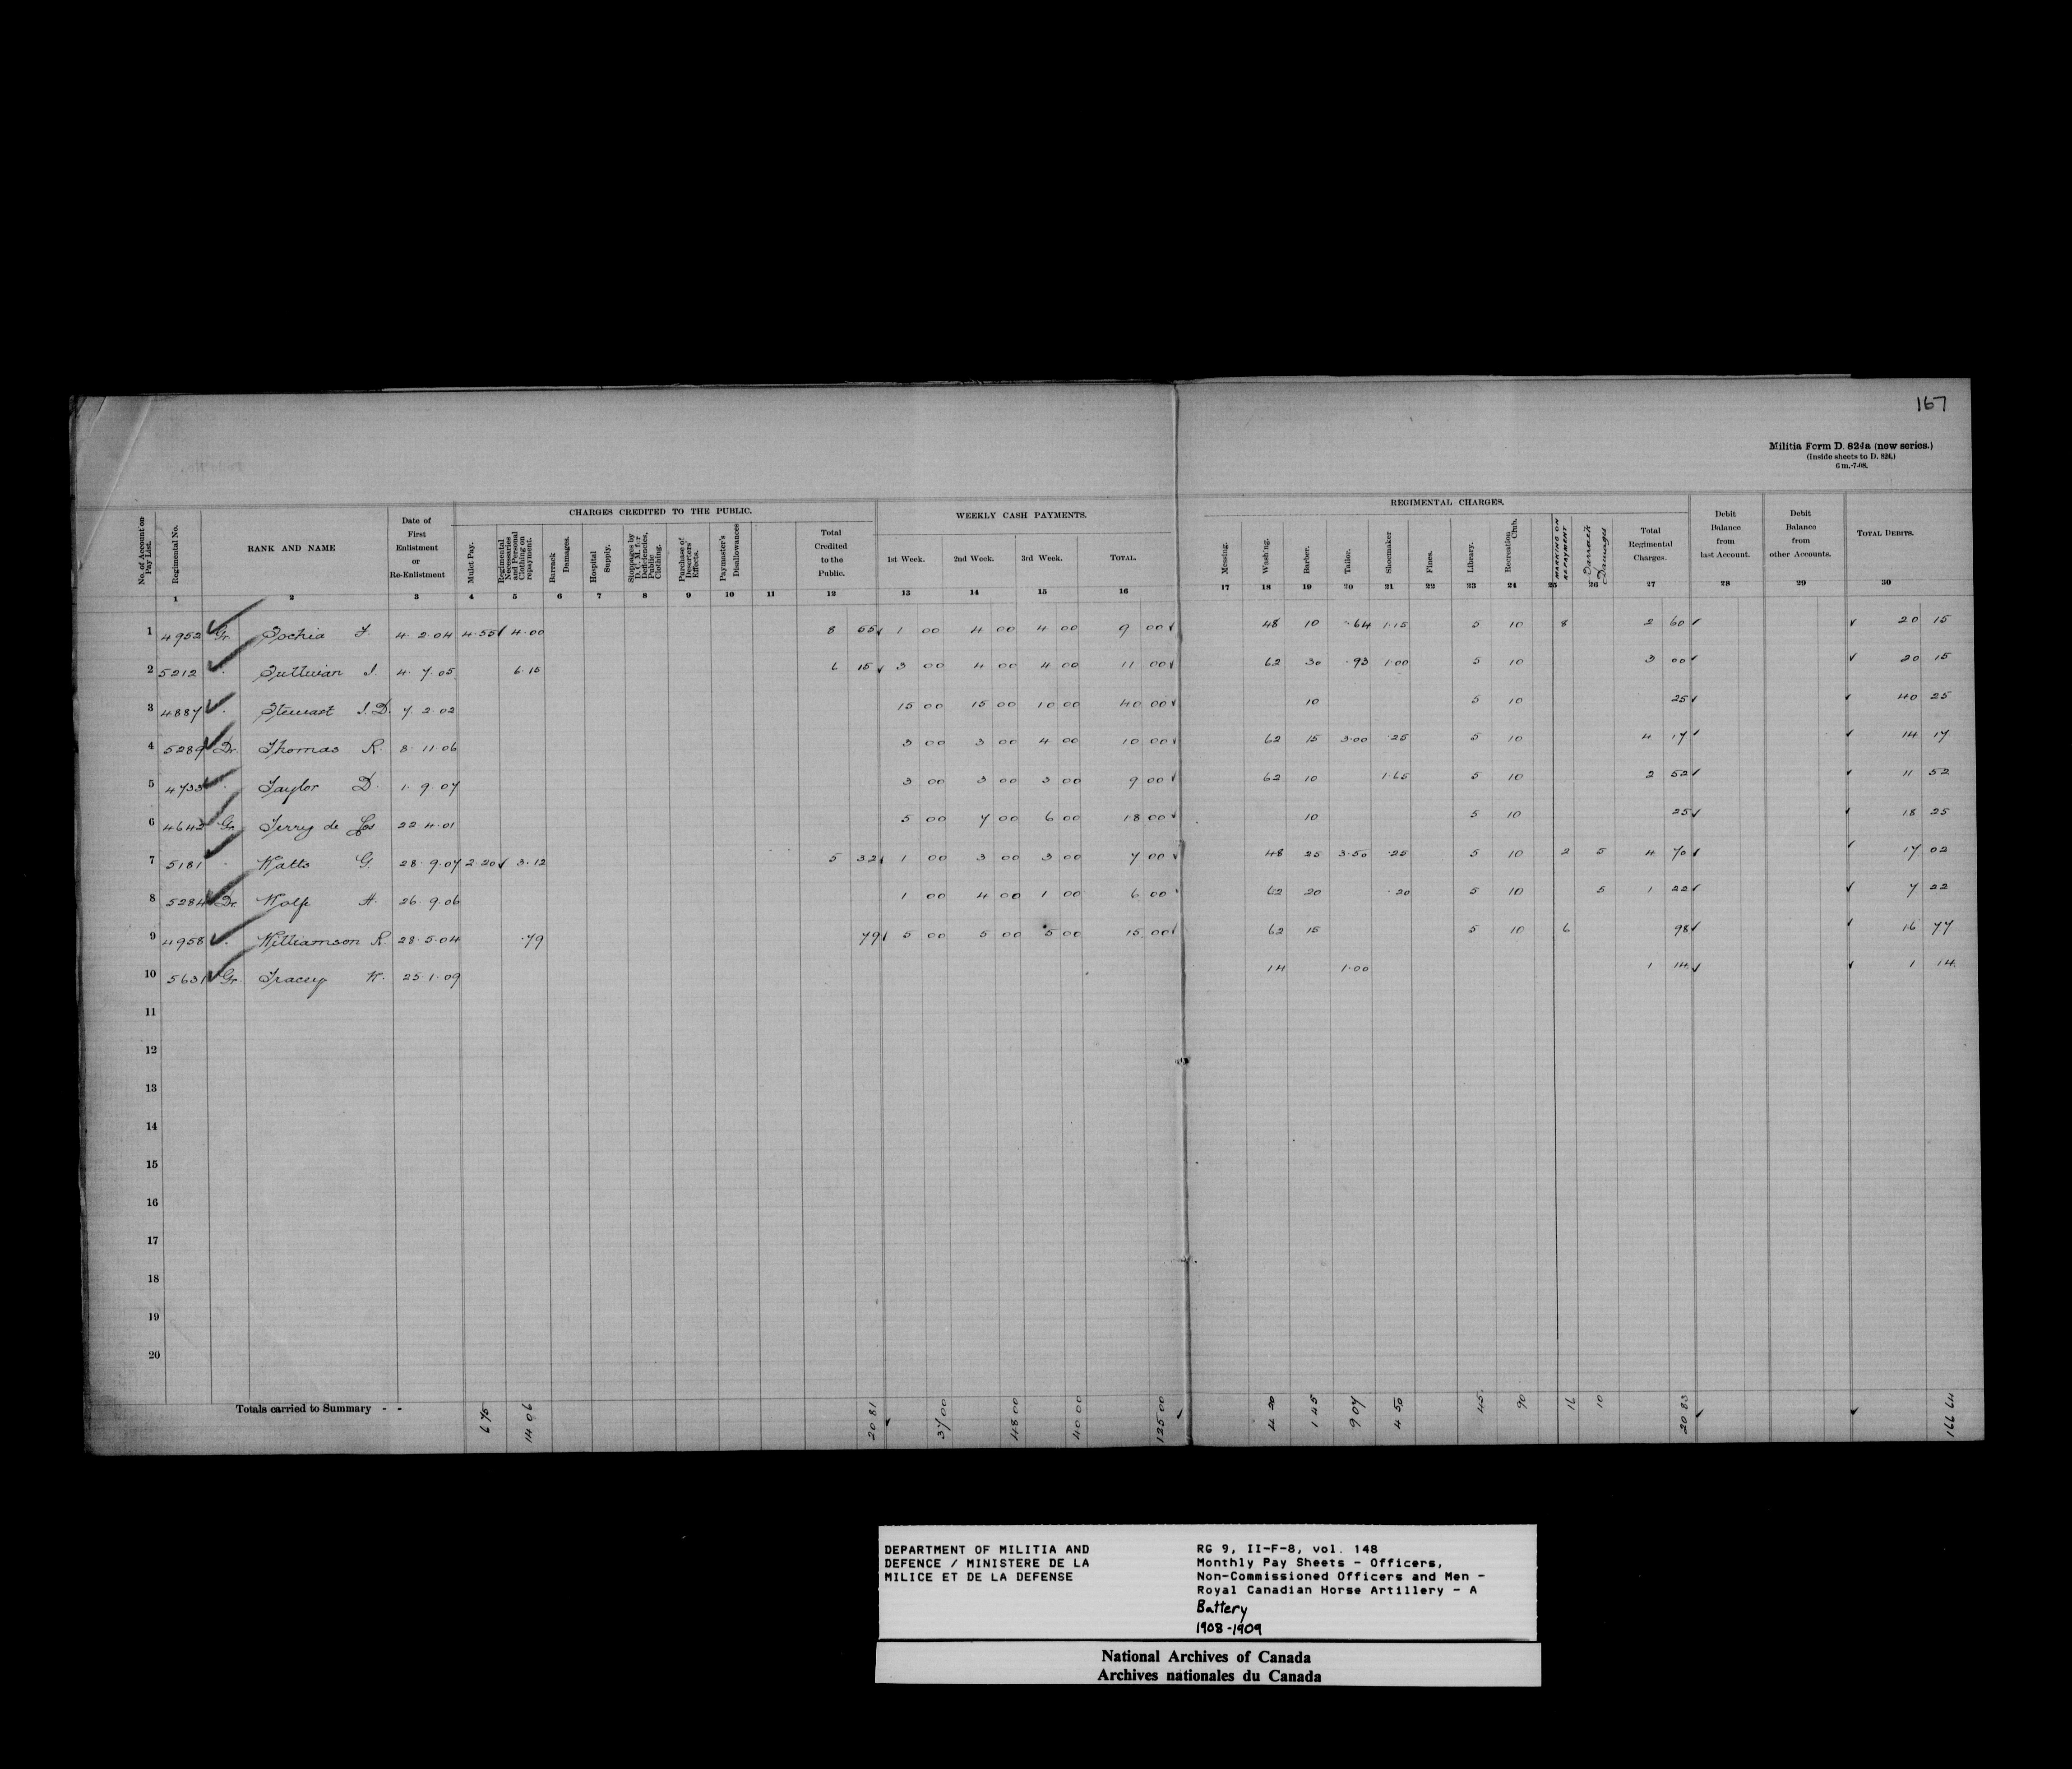 167
Militia Form D. 824a (new series.)
(Inside sheets to D. 824.)
6 m.-7-08.
No. of Account on Pay List. Regimental No. RANK AND NAME Date of First Enlistment or Re-Enlistment
CHARGES CREDITED TO THE PUBLIC.
Mulct Pay. Regimental Necessaries and Personal Clothing on repayment. Barrack Damages. Hospital Supply. Stoppages by D. C. M. for Deficiencies, Public Clothing. Purchase of Deserters' Effects. Paymaster's Disallowances Total Credited to the Public.
WEEKLY CASH PAYMENTS.
1st Week. 2nd Week. 3rd Week. TOTAL.
REGIMENTAL CHARGES.
Messing. Washing. Barber. Tailor. Shoemaker Fines. Library. Recreation Club. MARKING ON REPAYMENT Barrack Damages Total Regimental Charges.
Debit Balance from last Account. Debit Balance from other Accounts. TOTAL DEBITS.
1 2 3 4 5 6 7 8 9 10 11 12 13 14 15 16 17 18 19 20 21 22 23 24 25 26 27 28 29 30
1 4952 Gr. F. 4.2.04 4.55 4.00 8 55 1 00 4 00 4 00 9 00 48 10 .64 1.15 5 10 8 2 60 20 15
2 5212 . J. 4.7.05 6.15 6 15 3 00 4 00 4 00 11 00 62 30 .93 1.00 5 10 3 00 20 15
3 4887 . Stewart J.D. 7.2.02 15 00 15 00 10 00 40 00 10 5 10 25 40 25
4 5289 Dr. Thomas R. 8.11.06 3 00 3 00 4 00 10 00 62 15 3.00 .25 5 10 4 17 14 17
5 4733 . Taylor D. 1.9.07 3 00 3 00 3 00 9 00 62 10 1.65 5 10 2 52 11 52
6 4642 Gr. Terry de Jos 22.4.01 5 00 7 00 6 00 18 00 10 5 10 25 18 25
7 5181 . Watts G. 28.9.07 2.20 3.12 5 32 1 00 3 00 3 00 7 00 48 25 3.50 .25 5 10 2 5 4 70 17 02
8 5284 Dr. Wolfe H. 26.9.06 1 00 4 00 1 00 6 00 62 20 .20 5 10 5 1 22 7 22
9 4958 . Williamson R. 28.5.04 .79 79 5 00 5 00 5 00 15 00 62 15 5 10 6 98 16 77
10 5631 Gr. Tracey W. 25.1.09 14 1.00 1 14 1 14
11
12
13
14
15
16
17
18
19
20
Totals carried to Summary - - 6 75 14 06 20 81 37 00 48 00 40 00 125 00 4 20 1 45 9 07 4 50 45 90 16 10 20 83 166 64
DEPARTMENT OF MILITIA AND
DEFENCE / MINISTERE DE LA
MILICE ET DE LA DEFENSE
RG 9, II-F-8, vol. 148
Monthly Pay Sheets - Officers,
Non-Commissioned Officers and Men -
Royal Canadian Horse Artillery - A
Battery
1908-1909
National Archives of Canada
Archives nationales du Canada